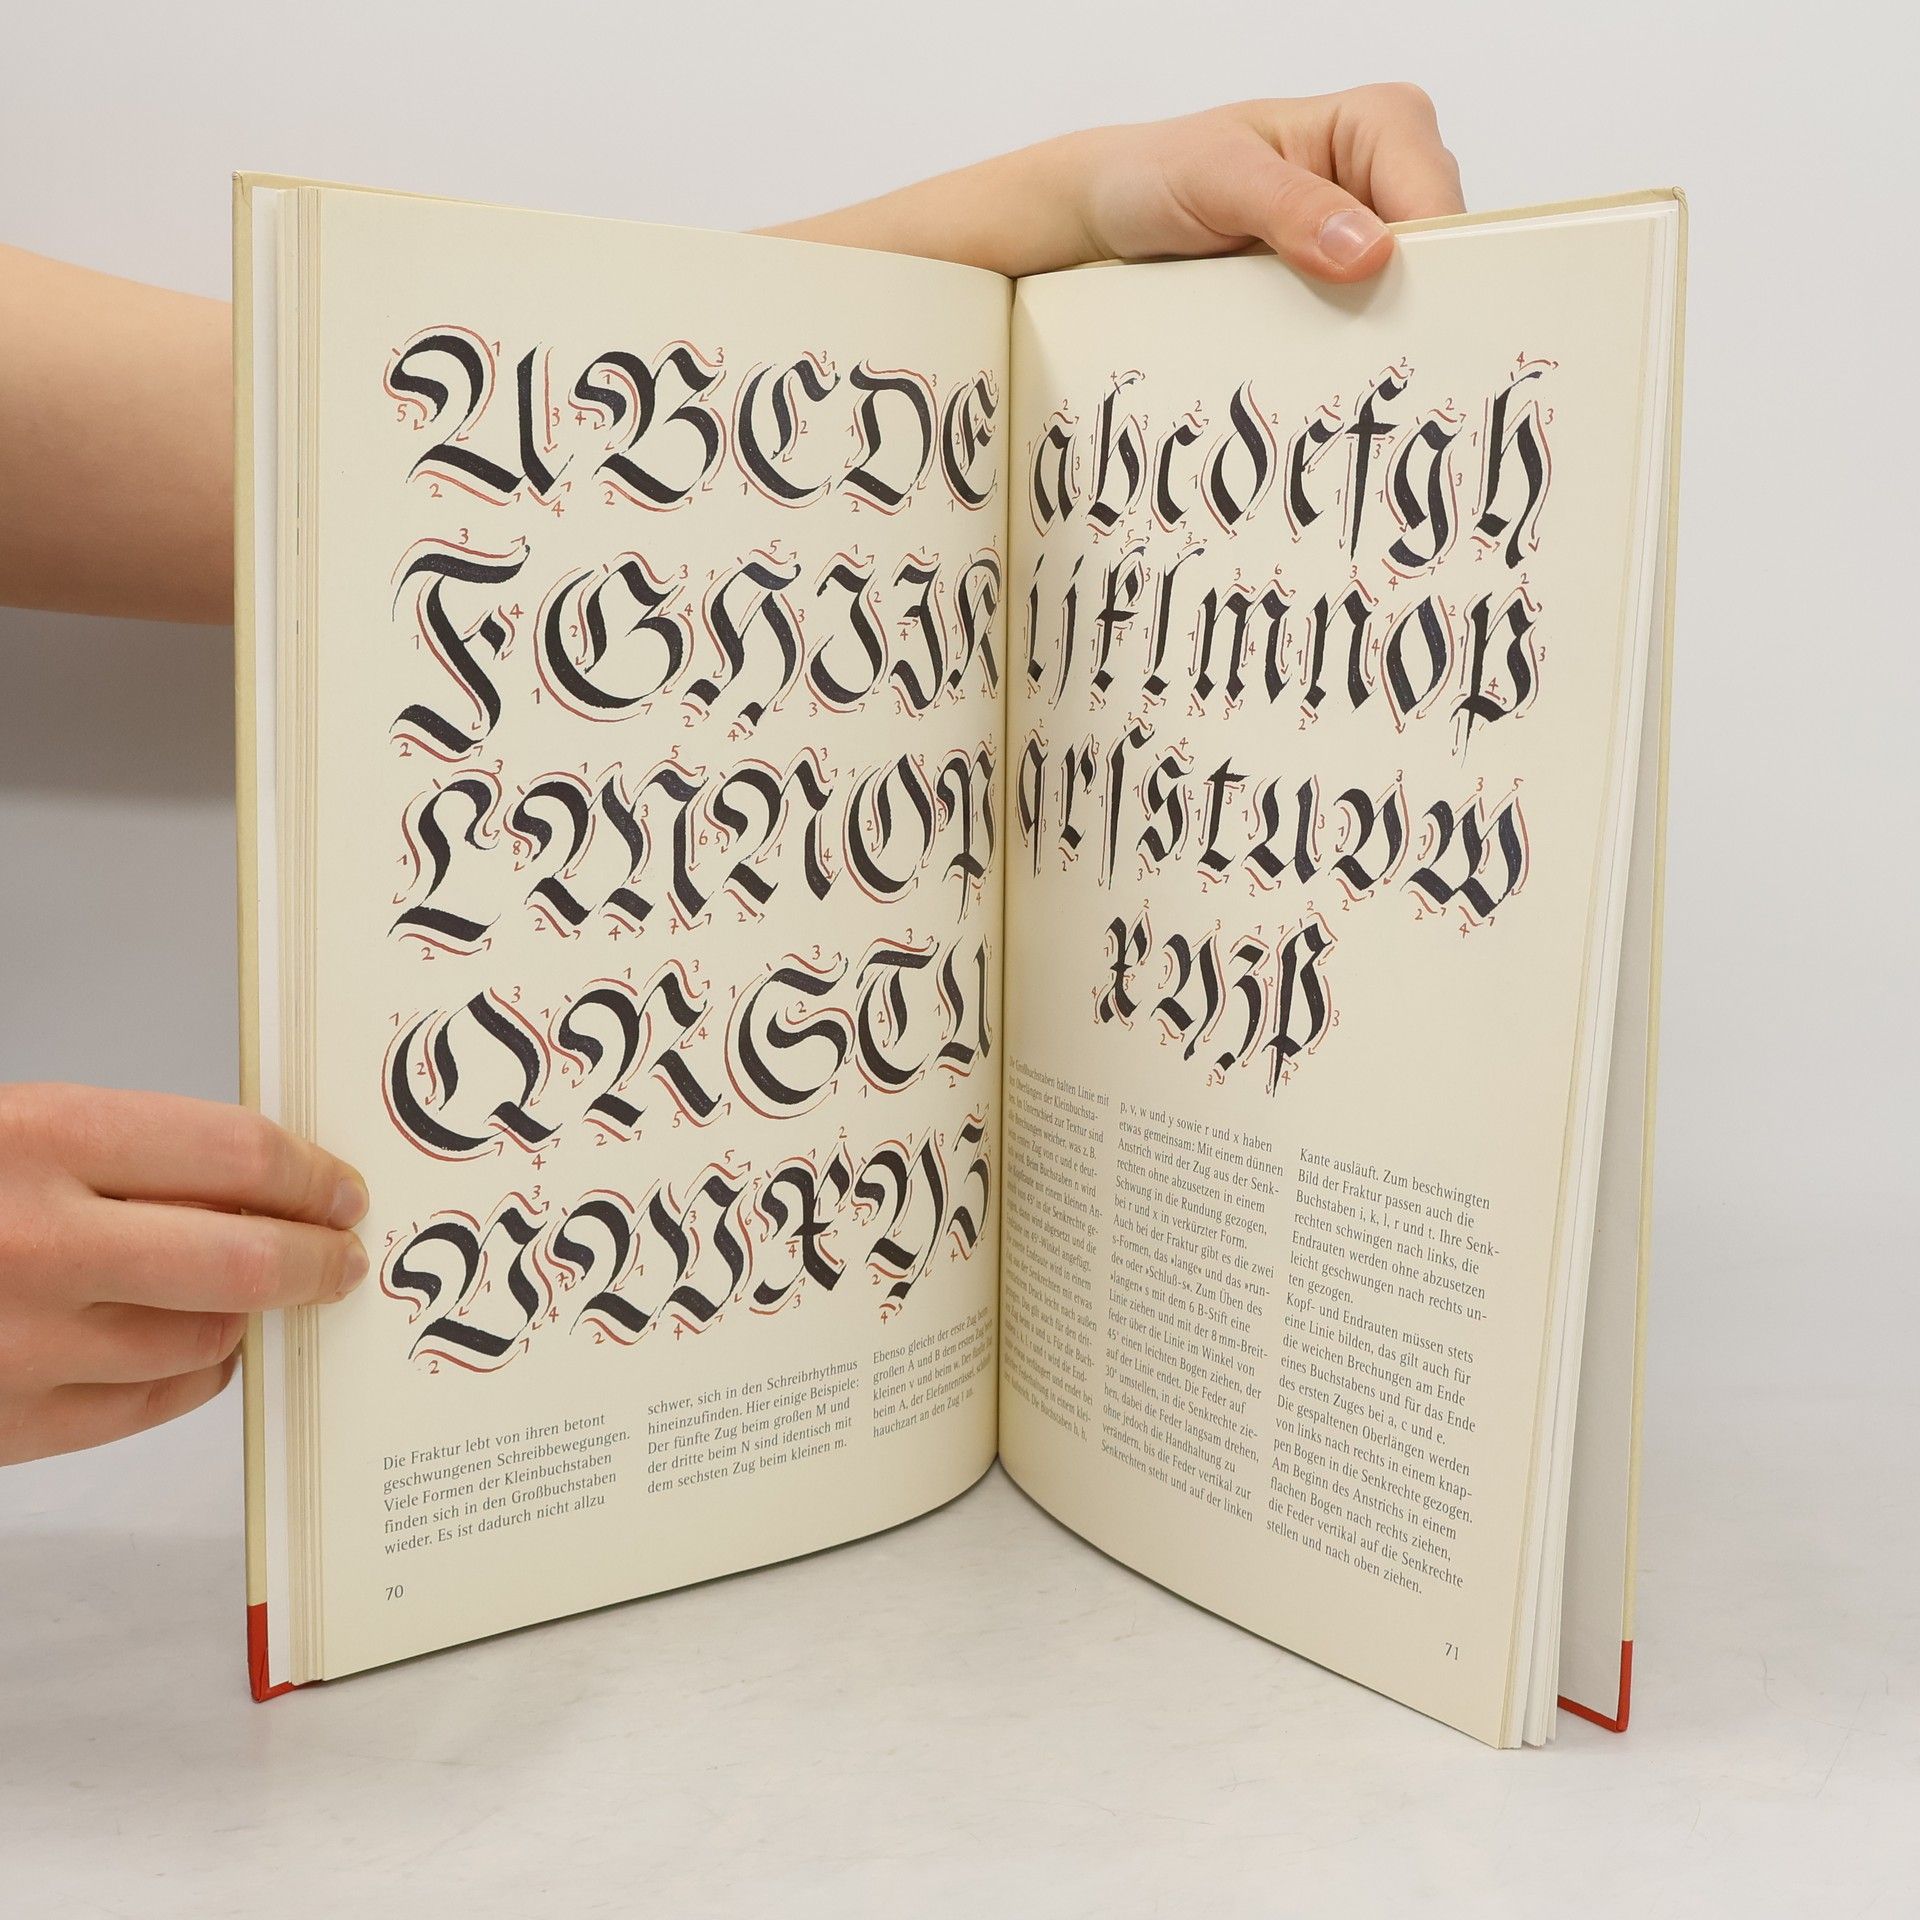 A B C D E
F G H I J K
L M N O P
Q R S T U
V W X Y Z
Die Fraktur lebt von ihren betont
geschwungenen Schreibbewegungen.
Viele Formen der Kleinbuchstaben
finden sich in den Großbuchstaben
wieder. Es ist dadurch nicht allzu
schwer, sich in den Schreibrhythmus
hineinzufinden. Hier einige Beispiele:
Der fünfte Zug beim großen M und
der dritte beim N sind identisch mit
dem sechsten Zug beim kleinen m.
Ebenso gleicht der erste Zug beim
großen A und B dem ersten Zug beim
kleinen v und beim w. Der fünfte Zug
beim A, der Elefantenrüssel, schließt
hauchzart an den Zug 1 an.
70
a b c d e f g h
i j k l m n o p
q r ſ s t u v w
x y z ß
Die Großbuchstaben halten Linie mit
den Oberlängen der Kleinbuchsta-
ben. Im Unterschied zur Textur sind
die Brechungen weicher, was z. B.
vom ersten Zug von c und e deut-
lich wird. Beim Buchstaben n wird
die Kopfraute mit einem kleinen An-
strich von 45° in die Senkrechte ge-
zogen, dann wird abgesetzt und die
Endraute im 45°-Winkel angefügt.
Die zweite Endraute wird in einem
Zug aus der Senkrechten mit etwas
verstärktem Druck leicht nach außen
gezogen. Das gilt auch für den drit-
ten Zug beim
verlängert und endet bei
Die Buchstaben b, h,
p, v, w und y sowie r und x haben
etwas gemeinsam: Mit einem dünnen
Anstrich wird der Zug aus der Senk-
rechten ohne abzusetzen in einem
Schwung in die Rundung gezogen,
bei r und x in verkürzter Form.
Auch bei der Fraktur gibt es die zwei
s-Formen, das »lange« und das »run-
de« oder »Schluß-s«. Zum Üben des
»langen« s mit dem 6 B-Stift eine
Linie ziehen und mit der 8 mm-Breit-
feder über die Linie im Winkel von
45° einen leichten Bogen ziehen, der
auf der Linie endet. Die Feder auf
30° umstellen, in die Senkrechte zie-
hen, dabei die Feder langsam drehen,
ohne jedoch die Handhaltung zu
verändern, bis die Feder vertikal zur
Senkrechten steht und auf der linken
Kante ausläuft. Zum beschwingten
Bild der Fraktur passen auch die
Buchstaben i, k, l, r und t. Ihre Senk-
rechten schwingen nach links, die
Endrauten werden ohne abzusetzen
leicht geschwungen nach rechts un-
ten gezogen.
Kopf- und Endrauten müssen stets
eine Linie bilden, das gilt auch für
die weichen Brechungen am Ende
eines Buchstabens und für das Ende
des ersten Zuges bei a, c und e.
Die gespaltenen Oberlängen werden
von links nach rechts in einem knap-
pen Bogen in die Senkrechte gezogen.
Am Beginn des Anstrichs in einem
flachen Bogen nach rechts ziehen,
die Feder vertikal auf die Senkrechte
stellen und nach oben ziehen.
71